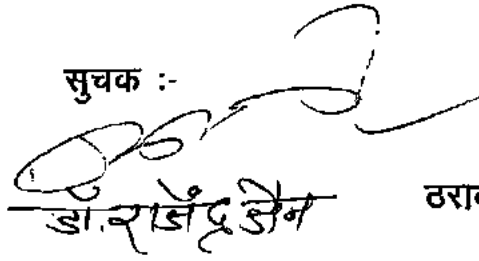 सुचक :-
डॉ. राजेंद्र जैन
ठराव